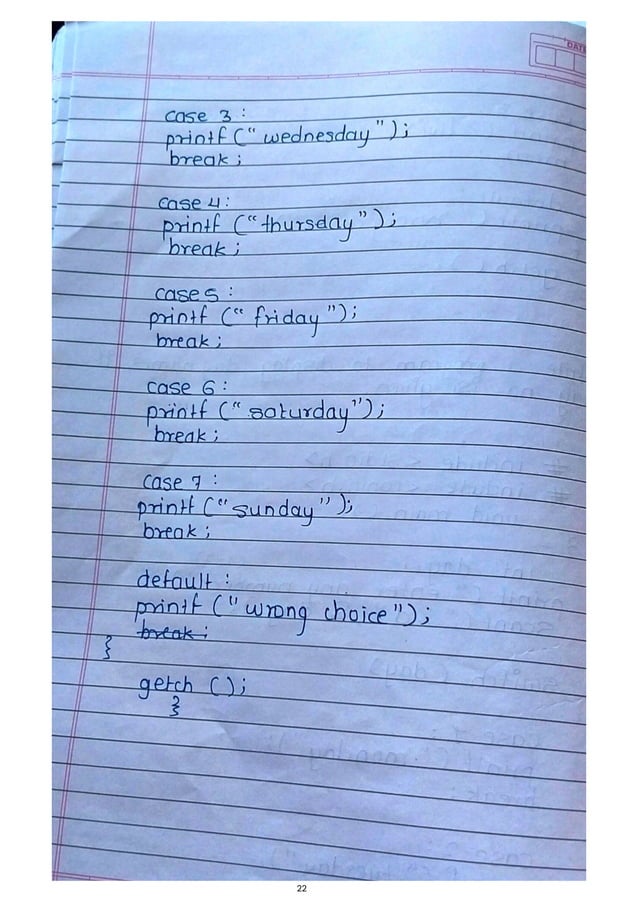 DATE
case 3 :
printf ("wednesday");
break ;
case 4 :
printf ("thursday");
break ;
case 5 :
printf ("friday");
break ;
case 6 :
printf ("saturday");
break ;
case 7 :
printf ("sunday");
break ;
default :
printf ("wrong choice");
break ;
}
getch ();
}
22